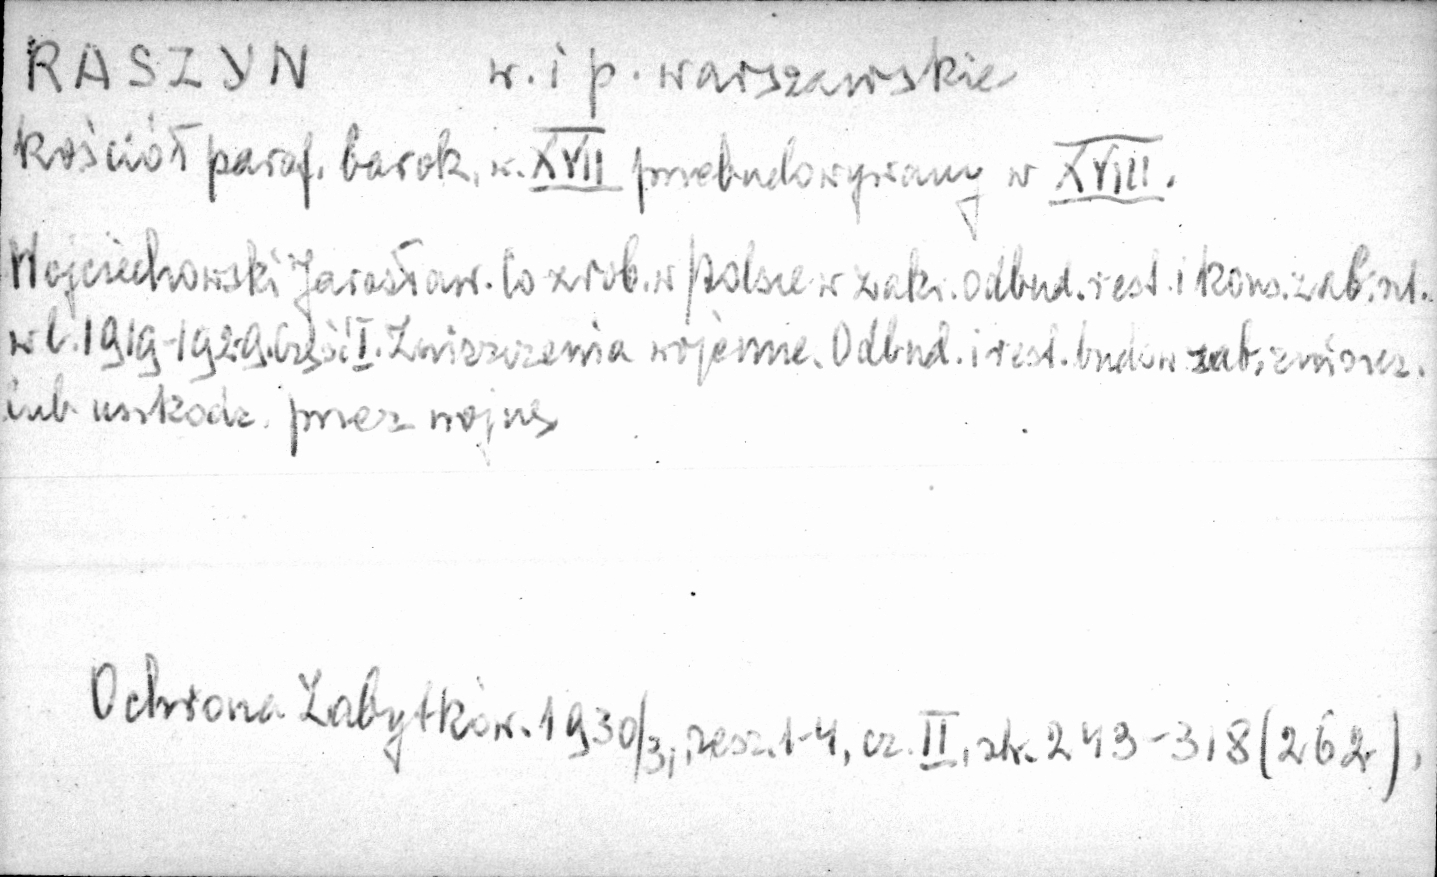 RASZYN w. i p. warszawskie
kościół paraf. barok. w. XVII przebudowywany w XVIII.
Wojciechowski Jarosław. Co zrob. w Polsce w zakr. odbud. rest. i kons. zab. szt.
w l. 1919-1929. Część I. Zniszczenia wojenne. Odbud. i rest. budow zab. zniszcz.
lub uszkodz. przez wojnę
Ochrona Zabytków. 1930/3, zesz. 1-4, cz. II, str. 249-318 (262),